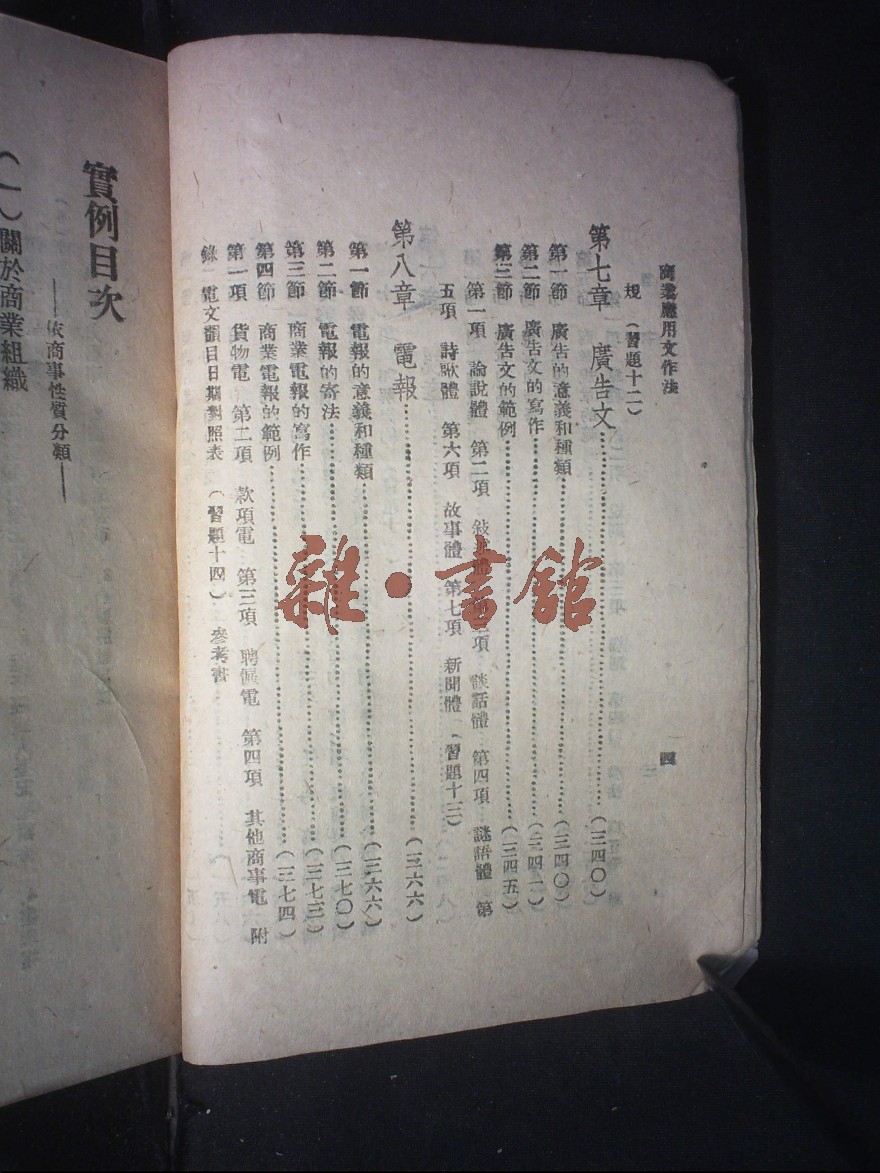 商業應用文作法 四
規 (習題十二)
第七章 廣告文……(三四〇)
第一節 廣告的意義和種類……(三四〇)
第二節 廣告文的寫作……(三四一)
第三節 廣告文的範例……(三四五)
第一項 論說體 第二項 敍述體 第三項 談話體 第四項 謎語體 第
五項 詩歌體 第六項 故事體 第七項 新聞體 (習題十三)
第八章 電報……(三六六)
第一節 電報的意義和種類……(三六六)
第二節 電報的寄法……(三七〇)
第三節 商業電報的寫作……(三七三)
第四節 商業電報的範例……(三七四)
第一項 貨物電 第二項 款項電 第三項 聘僱電 第四項 其他商事電 附
錄 電文韻目日期對照表 (習題十四) 參考書
實例目次
——依商事性質分類——
(一)關於商業組織
雜·書館